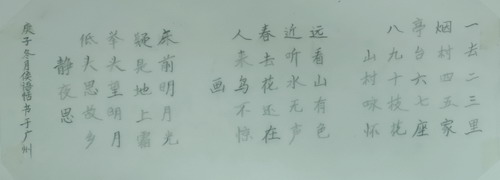 一去二三里
烟村四五家
亭台六七座
八九十枝花
山村咏怀
远看山有色
近听水无声
春去花还在
人来鸟不惊
画
床前明月光
疑是地上霜
举头望明月
低头思故乡
静夜思
庚子冬月侯语恬书于广州